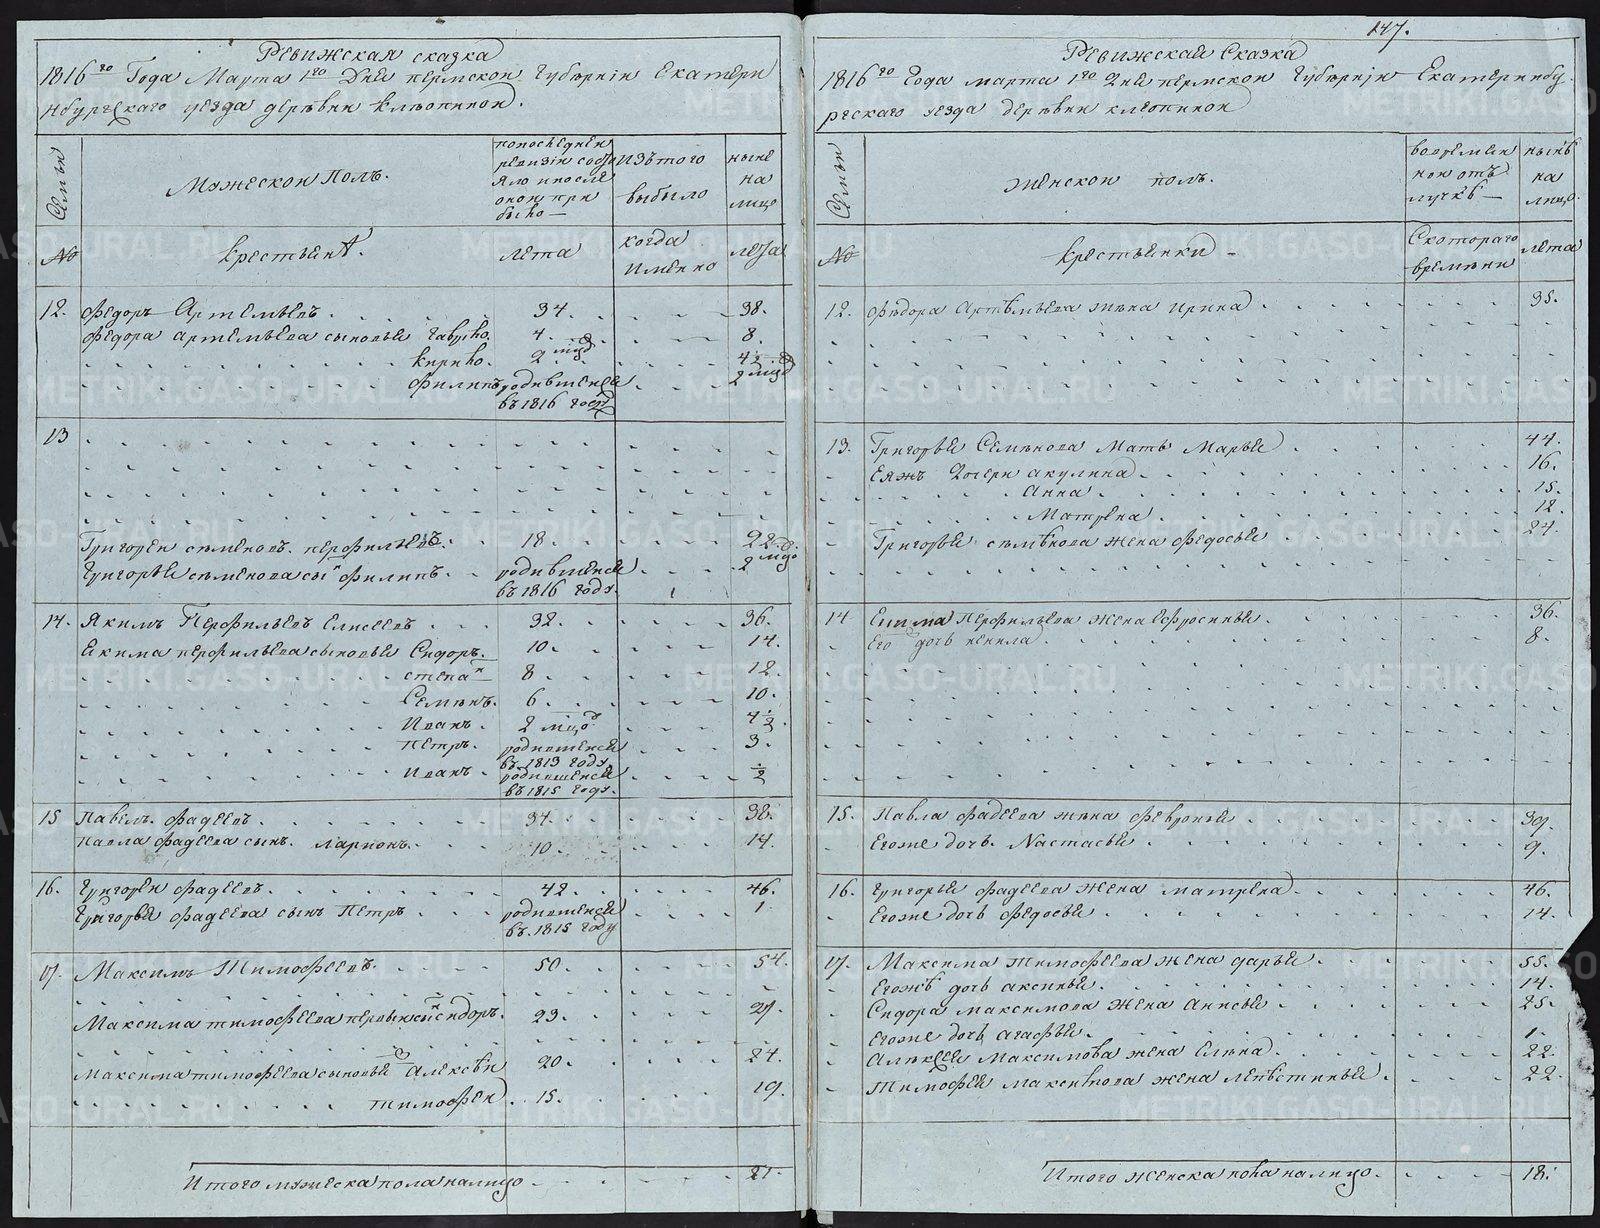 Ревижская сказка
1816го Года Марта 1го Дня пермской Губернiи Екатери
нбургскаго уезда деревни клѣопиной.
Семьи
Мужеской Полъ.
попоследней
ревизiи состо
яло и после
оной при
было
Изъ того
выбыло
ныне
на
лицо
№
крестьянѣ.
лета
когда
имянно
лета
12. Федоръ Артемьевъ 34. 38.
Федора артемьева сыновья Гаврило. 4. 8.
кирило. 2 мцд 4½
филипъ родившейся 2 мцд
въ 1816 годꙋ
13
Григорей семеновъ перфильевъ. 18. 22.
Григорья семенова сынъ филипъ. родившейся 2 мцд
въ 1816 году.
14. Якимъ Перфильевъ Елисеевъ 32. 36.
Екима перфильева сыновья Сидоръ. 10. 14.
степанъ 8 12.
Семенъ. 6. 10.
Иванъ. 2 мцд 4½.
петръ. родившейся 3.
въ 1813 году.
Иванъ. родившейся ½
въ 1815 году.
15 Павелъ фадеевъ. 34. 38.
Павла фадеева сынъ. ларионъ. 10. 14.
16. Григорей фадеевъ. 42. 46.
Григорья фадеева сынъ Петръ родившейся 1.
въ 1815 году
17. Максимъ Тимофеевъ. 50. 54.
Максима тимофеева первый сынъ сидоръ. 23. 27.
Максима тимофеева сыновья Алексѣй 20. 24.
тимофей. 15. 19.
Итого мужеска пола налицо 27.
147.
Ревижская Сказка
1816го Года марта 1го Дня пермской Губернiи Екатеринбу
ргскаго уезда деревни клеопиной
Семьи
женской полъ.
во времен
ной отъ
лучкѣ
нынѣ
на
лицо.
№
крестьянки
Скотораго
времяни
лета
12. Фѣдора Артѣмьева жена ирина 35.
13. Григорья Семенова Мать Марья 44.
Еяжъ Дочери акулина 16.
Анна 15.
Матрена 12.
Григорья семѣнова жена федосья 24.
14 Екима Перфильева жена Ефросинья. 36.
Его дочь ненила. 8.
15. Павла фадеева жена февронья 39.
Егоже дочь. Настасья 9.
16. Григорья фадеева жена матрена. 46.
Егоже дочь федосья 14.
17. Максима тимофеева жена дарья 55.
Егожѣ дочь аксинья. 14.
Сидора максимова жена Анисья 25.
Егоже дочь агафья. 1.
Алексея Максимова жена Елена. 22.
Тимофея Максимова жена 22.
Итого женска пола налицо. 18.
METRIKI.GASO-URAL.RU